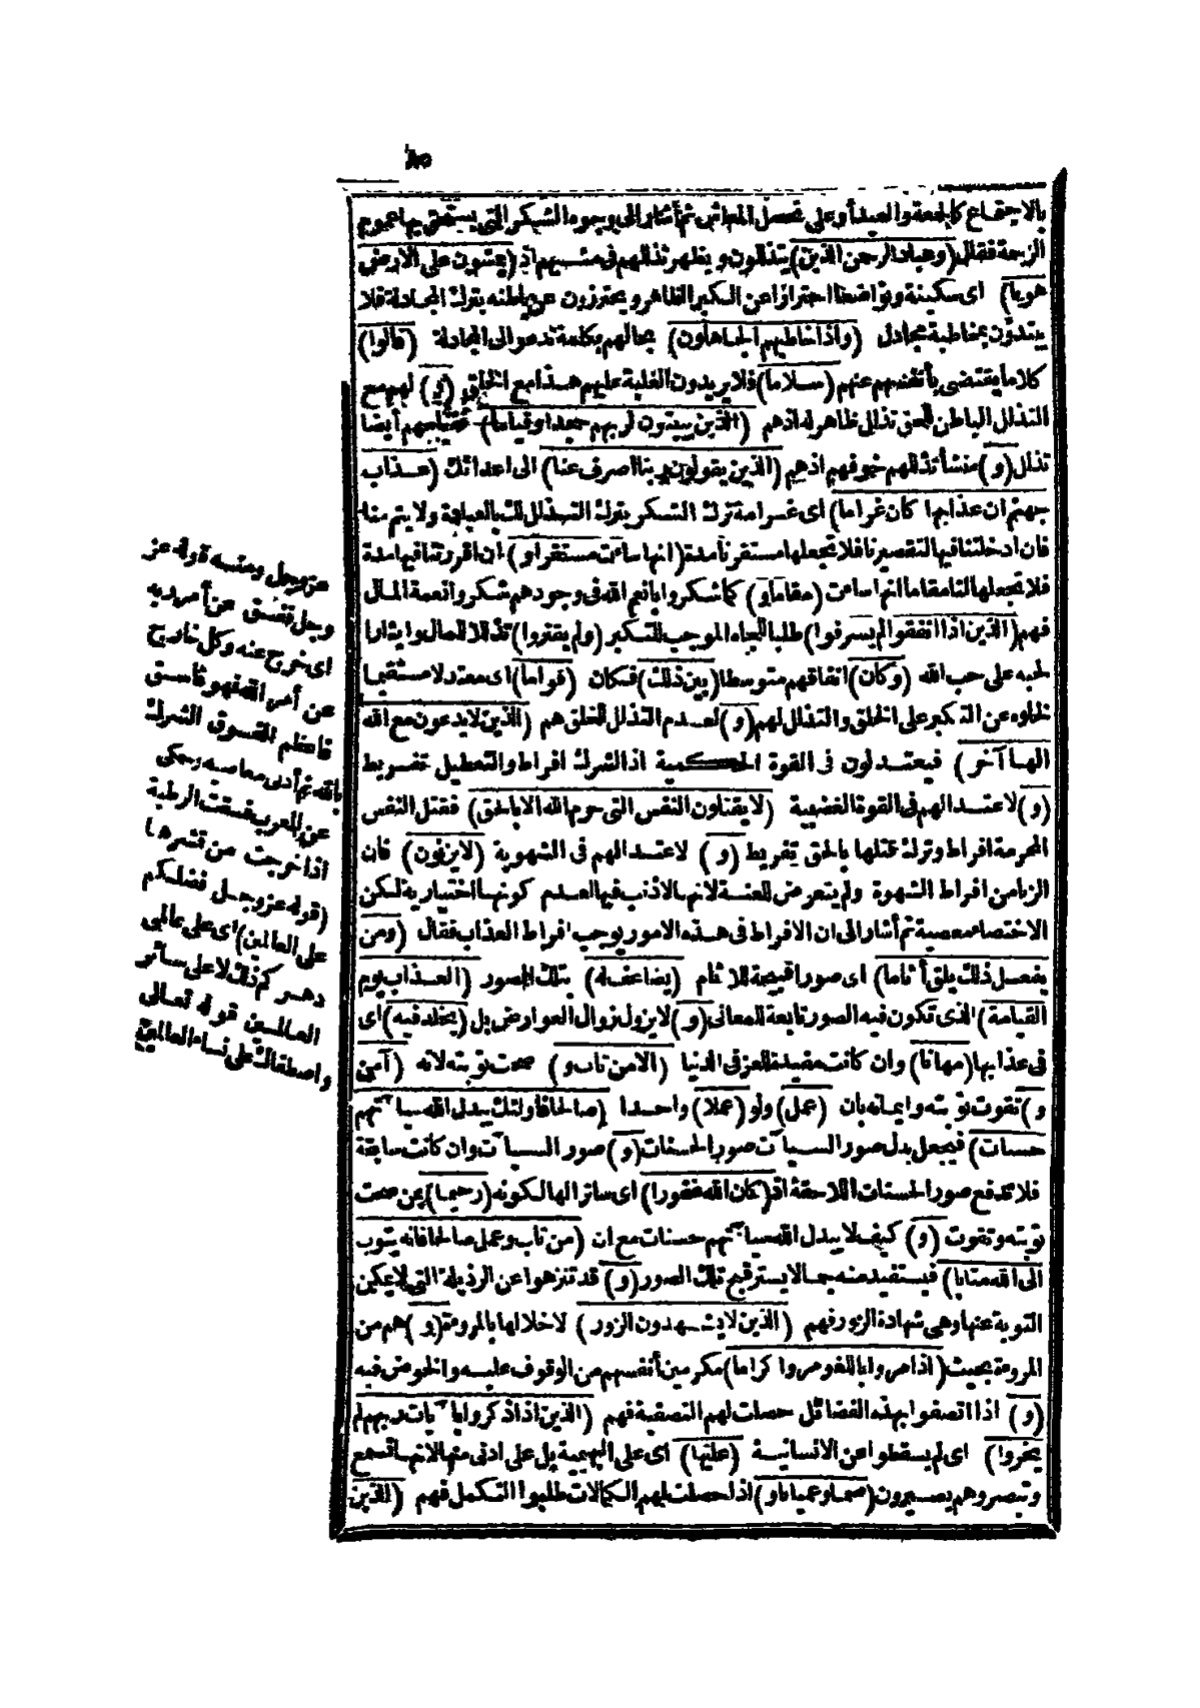 ٨٥
بالاجتماع كالجمعة والعيد أو على تحصيل المعاش ثم أشار الى وجوه الشكر التى يستحق بها عموم
الرحمة فقال (وعباد الرحمن الذين) يتذللون ويظهر تذللهم فى مشيهم اذ (يمشون على الارض
هونا) اى سكينة وتواضعا احترازا عن الكبر الظاهر ويحترزون عن باطنه بترك المجادلة فلا
يبتدؤن بمخاطبة مجادل (واذا خاطبهم الجاهلون) بجهالهم بكلمة تدعو الى المجادلة (قالوا)
كلاما يقتضى بأنفسهم عنهم (سلاما) فلا يريدون الغلبة عليهم هذا مع الخلق (و) لهم مع
التذلل الباطن للحق تذلل ظاهر له اذهم (الذين يبيتون لربهم سجدا وقياما) فقيامهم أيضا
تذلل (و) منشأ تذللهم خوفهم اذهم (الذين يقولون ربنا اصرف عنا) الى اعدائك (عذاب
جهنم ان عذابها كان غراما) اى غرامة ترك الشكر بترك التذلل لك بالعبادة ولا يتم منا
فان ادخلتنا فيها لتقصيرنا فلا تجعلها مستقرنا مدة (انها ساءت مستقرا و) ان اقررتنا فيها مدة
فلا تجعلها لنا مقاما انها ساءت (مقاما و) كما شكروا بانعم الله فى وجودهم شكروا نعمة المال
فهم (الذين اذا انفقوا لم يسرفوا) طلبا للجاه الموجب للتكبر (ولم يقتروا) تذللا للمال وايثارا
لحبه على حب الله (وكان) انفاقهم متوسطا (بين ذلك) فكان (قواما) اى معتدلا مستقيما
لخلوه عن التكبر على الخلق والتذلل لهم (و) لعدم التذلل للخلق هم (الذين لا يدعون مع الله
الها آخر) فيعتدلون فى القوة الحكمية اذ الشرك افراط والتعطيل تفريط
(و) لاعتدالهم فى القوة الغضبية (لا يقتلون النفس التى حرم الله الا بالحق) فقتل النفس
المحرمة افراط وترك قتلها بالحق تفريط (و) لاعتدالهم فى الشهوية (لا يزنون) فان
الزنا من افراط الشهوة ولم يتعرض للعنة لانها لا ذنب فيها لعدم كونها اختيارية لكن
الاختصاء معصية ثم أشار الى ان الافراط فى هذه الامور يوجب افراط العذاب فقال (ومن
يفعل ذلك يلق أثاما) اى صورا قبيحة للاثام (يضاعف له) بتلك الصور (العذاب يوم
القيامة) الذى تكون فيه الصور تابعة للمعانى (و) لا يزول زوال العوارض بل (يخلد فيه) اى
فى عذابها (مهانا) وان كانت مفيدة للعز فى الدنيا (الا من تاب و) صحت توبته لانه (آمن
و) تقوت توبته وايمانه بان (عمل) ولو (عملا) واحدا (صالحا فاولئك يبدل الله سيآتهم
حسنات) فيجعل بدل صور السيآت صور الحسنات (و) صور السيآت وان كانت سابقة
فلا تدفع صور الحسنات اللاحقة اذ (كان الله غفورا) اى ساترا لها لكونه (رحيما) بمن صحت
توبته وتقوت (و) كيف لا يبدل الله سيآتهم حسنات مع ان (من تاب وعمل صالحا فانه يتوب
الى الله متابا) فيستفيد منه جمالا يستر قبح تلك الصور (و) قد تنزهوا عن الرذيلة التى لا يمكن
التوبة عنها وهى شهادة الزور فهم (الذين لا يشهدون الزور) لاخلالها بالمروءة (و) هم من
المروءة بحيث (اذا مروا باللغو مروا كراما) مكرمين أنفسهم من الوقوف عليه والخوض فيه
(و) اذا اتصفوا بهذه الفضائل حصلت لهم التصفية فهم (الذين اذا ذكروا بآيات ربهم لم
يخروا) اى لم يسقطوا عن الانسانية (عليها) اى على البهيمية بل على ادنى منها لانها تسمع
وتبصر وهم يصيرون (صما وعميانا و) اذا حصلت لهم الكمالات طلبوا التكمل فهم (الذين
عز وجل ومنه قوله عز
وجل ففسق عن أمر ربه
اى خرج عنه وكل خارج
عن أمر الله فهو فاسق
فاعظم الفسوق الشرك
بالله ثم أدنى معاصيه وحكى
عن العرب فسقت الرطبة
اذا خرجت من قشرها
(قوله عز وجل فضلتكم
على العالمين) اى على عالمى
دهركم ذلك لا على سائر
العالمين قوله تعالى
واصطفاك على نساء العالمين